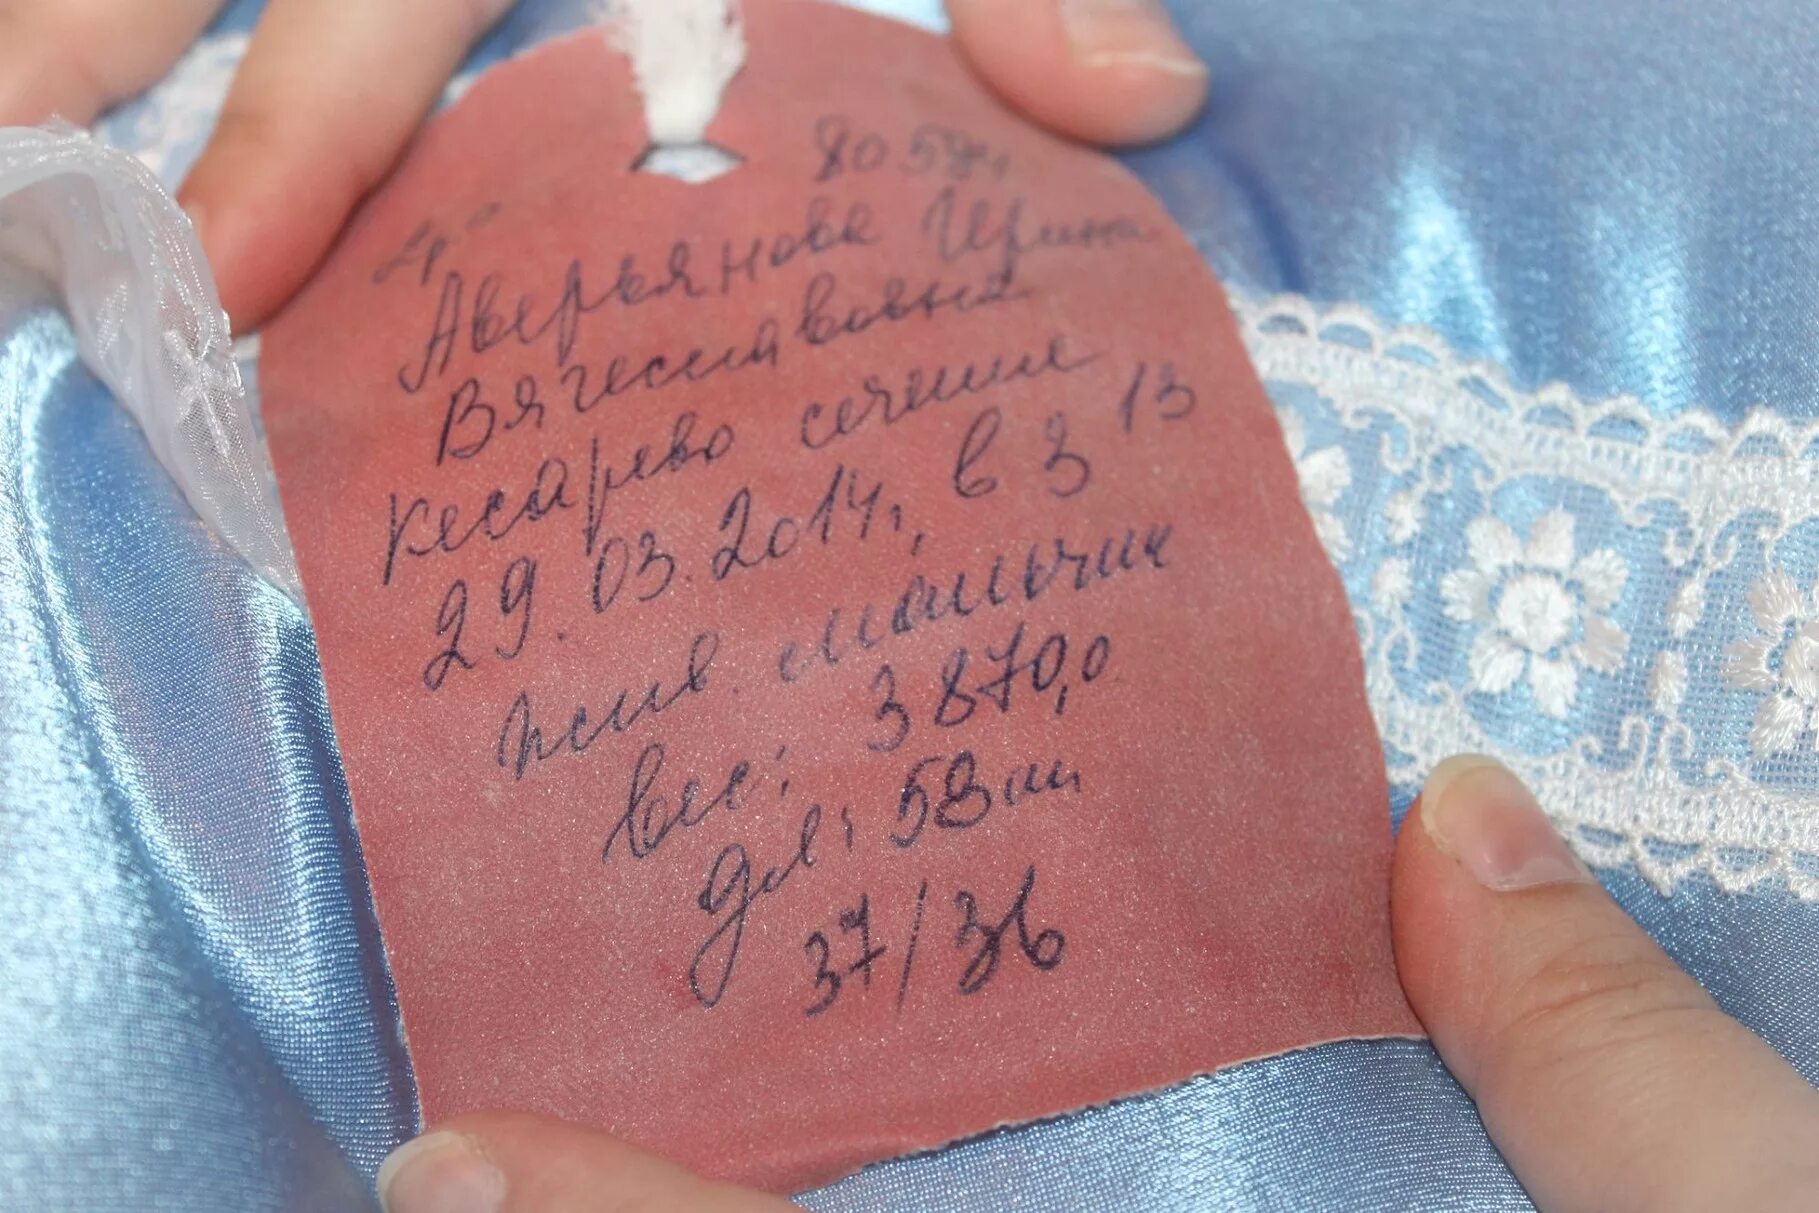 Аверьянова Ирина
Вячеславовна
кесарево сечение
29.03.2014г, в 3 13
жив. мальчик
вес: 3870,0
дл: 53 см
37/36